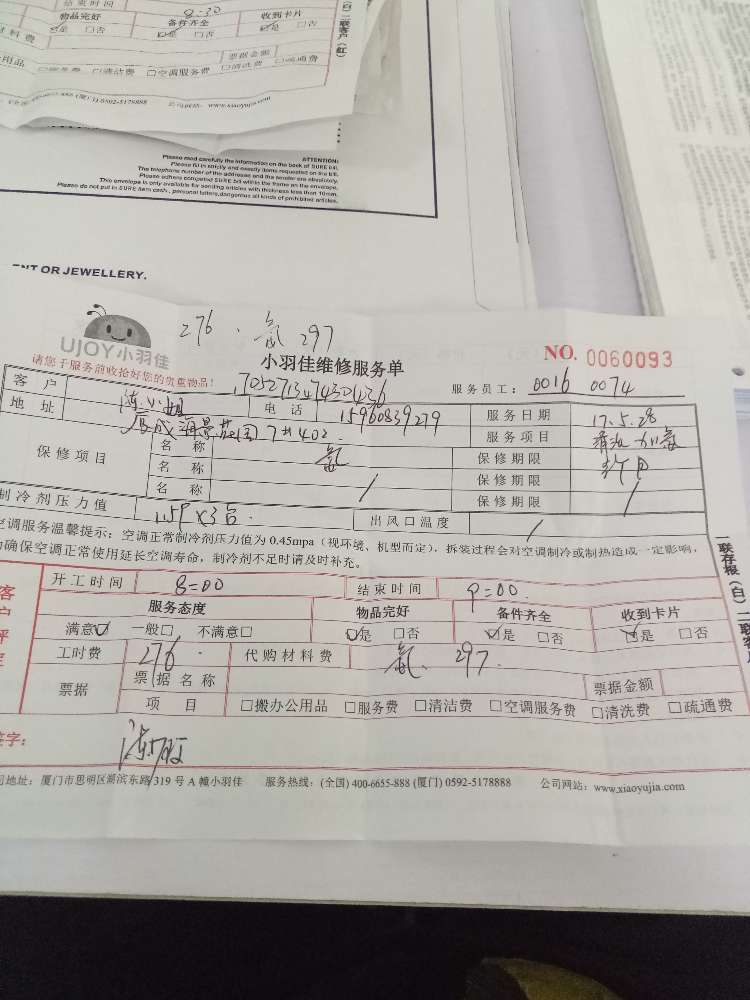 结束时间 8:30
物品完好 备件齐全 收到卡片
是 □否 是 □否 是 □否
材料费
票据金额
用品 □服务费 □清洁费 □空调服务费 □清洗费 □疏通费
(厦门) 0592-5178888 公司网站: www.xiaoyujia.com
ATTENTION:
Please read carefully the information on the back of
Please fill in strictly and exactly items requested on the bill.
The telephone number of the addressee and the sender are absolutely
This envelope is only available for sending articles with thickness less than 10mm.
OR JEWELLERY.
276 . 氟 297
UJOY小羽佳
小羽佳维修服务单
NO. 0060093
请您于服务前收拾好您的贵重物品!
服务员工: 0016 0074
客户 陈小姐 电话 15960839279 服务日期 17.5.28
地址 海景花园7#402 服务项目 清洗 加氟
保修项目 名称 氟 保修期限
名称 保修期限
名称 / 保修期限 /
制冷剂压力值 1.5P×3台 出风口温度 /
空调服务温馨提示: 空调正常制冷剂压力值为 0.45mpa (视环境、机型而定), 拆装过程会对空调制冷或制热造成一定影响,
为确保空调正常使用延长空调寿命, 制冷剂不足时请及时补充。
一联存根(白) 二联客户
开工时间 8:00 结束时间 9:00
服务态度 物品完好 备件齐全 收到卡片
满意☑ 一般□ 不满意□ ☑是 □否 ☑是 □否 ☑是 □否
工时费 276. 代购材料费 氟. 297.
票据 票据名称 票据金额
项目 □搬办公用品 □服务费 □清洁费 □空调服务费 □清洗费 □疏通费
签字:
司地址: 厦门市思明区湖滨东路319号A幢小羽佳 服务热线: (全国) 400-6655-888 (厦门) 0592-5178888 公司网站: www.xiaoyujia.com